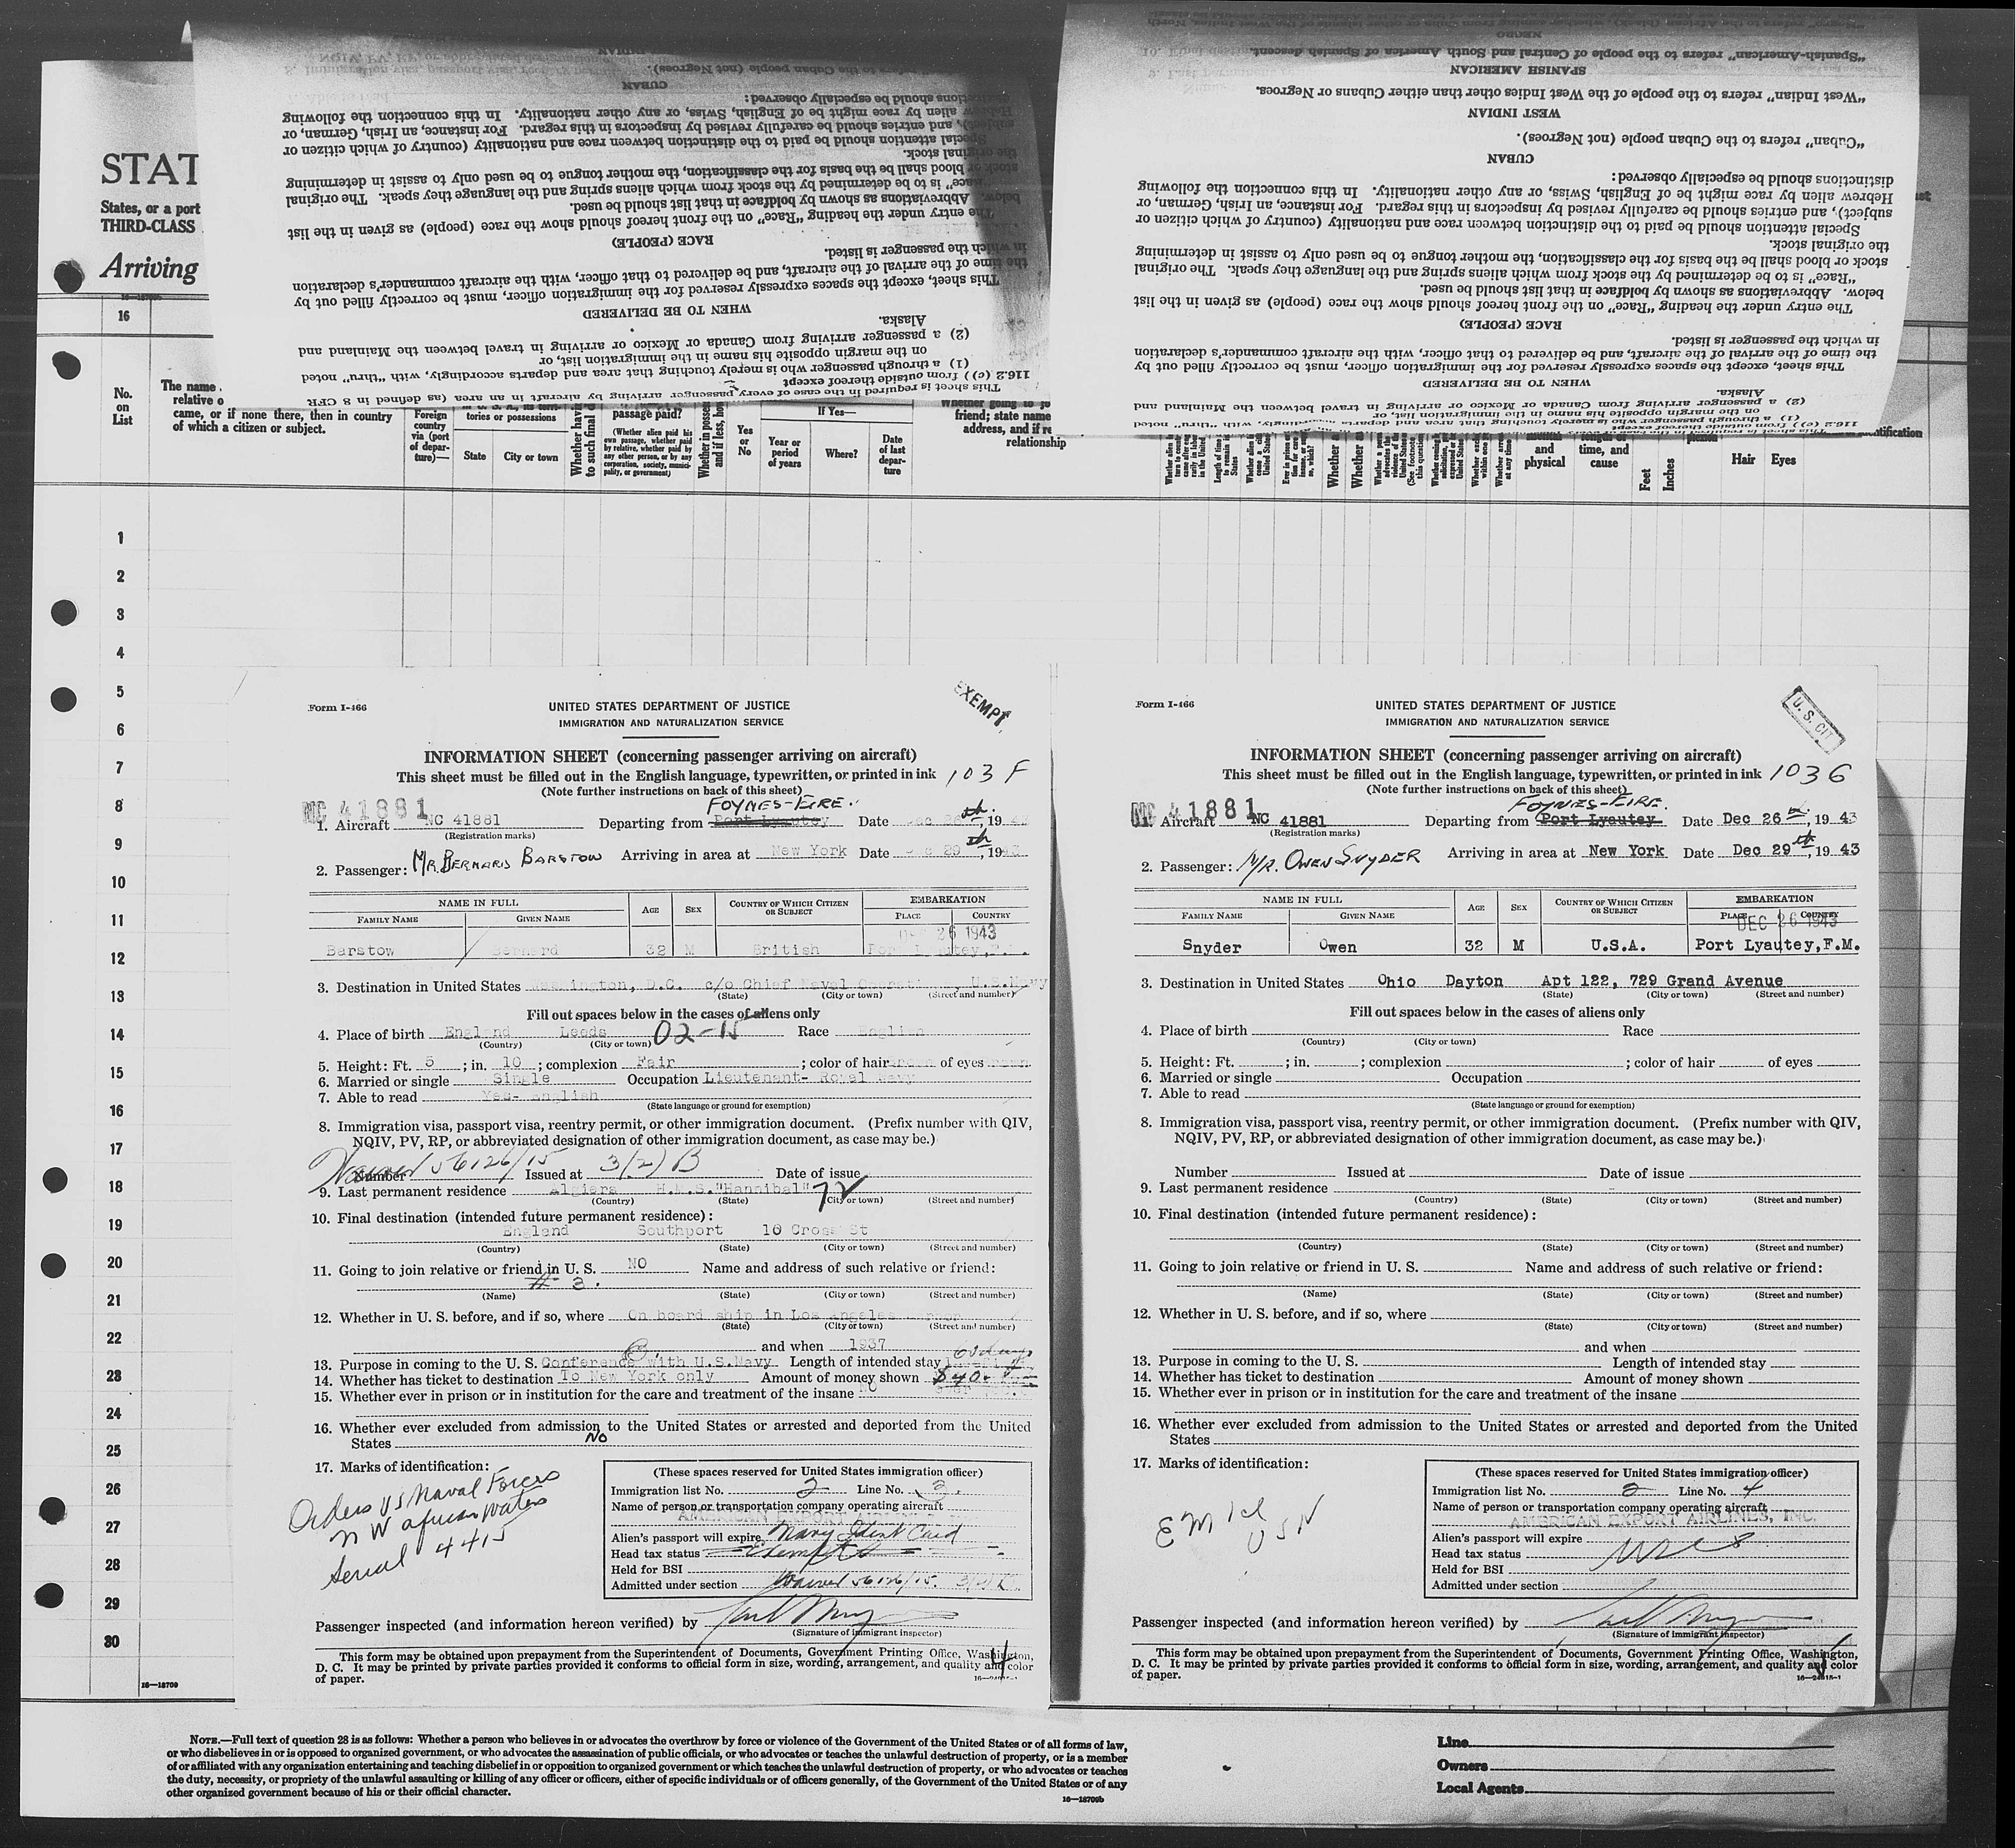 "Spanish-American" refers to the people of Central and South America of Spanish descent.
SPANISH AMERICAN
"West Indian" refers to the people of the West Indies other than either Cubans or Negroes.
WEST INDIAN
"Cuban" refers to the Cuban people (not Negroes).
CUBAN
distinctions should be especially observed:
Hebrew alien by race might be of English, Swiss, or any other nationality. In this connection the following
subject), and entries should be carefully revised by inspectors in this regard. For instance, an Irish, German, or
Special attention should be paid to the distinction between race and nationality (country of which citizen or
the original stock.
stock or blood shall be the basis for the classification, the mother tongue to be used only to assist in determining
"Race" is to be determined by the stock from which aliens spring and the language they speak. The original
below. Abbreviations as shown by boldface in that list should be used.
The entry under the heading "Race" on the front hereof should show the race (people) as given in the list
RACE (PEOPLE)
in which the passenger is listed.
the time of the arrival of the aircraft, and be delivered to that officer, with the aircraft commander's declaration
This sheet, except the spaces expressly reserved for the immigration officer, must be correctly filled out by
WHEN TO BE DELIVERED
Alaska.
(2) a passenger arriving from Canada or Mexico or arriving in travel between the Mainland and
on the margin opposite his name in the immigration list, or
CUBAN
distinctions should be especially observed:
Hebrew alien by race might be of English, Swiss, or any other nationality. In this connection the following
subject), and entries should be carefully revised by inspectors in this regard. For instance, an Irish, German, or
Special attention should be paid to the distinction between race and nationality (country of which citizen or
the original stock.
stock or blood shall be the basis for the classification, the mother tongue to be used only to assist in determining
"Race" is to be determined by the stock from which aliens spring and the language they speak. The original
below. Abbreviations as shown by boldface in that list should be used.
The entry under the heading "Race" on the front hereof should show the race (people) as given in the list
RACE (PEOPLE)
in which the passenger is listed.
the time of the arrival of the aircraft, and be delivered to that officer, with the aircraft commander's declaration
This sheet, except the spaces expressly reserved for the immigration officer, must be correctly filled out by
WHEN TO BE DELIVERED
Alaska.
(2) a passenger arriving from Canada or Mexico or arriving in travel between the Mainland and
on the margin opposite his name in the immigration list, or
(1) a through passenger who is merely touching that area and departs accordingly, with "thru" noted
116.2 (c) ) from outside thereof except
This sheet is required in the case of every passenger arriving by aircraft in an area (as defined in 8 CFR
STAT
States, or a port
THIRD-CLASS
Arriving
16
No.
on
List
The name
relative o
came, or if none there, then in country
of which a citizen or subject.
Foreign
country
via (port
of depar-
ture)—
tories or possessions
State
City or town
passage paid?
(Whether alien paid his
own passage, whether paid
by relative, whether paid by
any other person, or by any
corporation, society, munici-
pality, or government)
Yes
or
No
If Yes—
Year or
period
of years
Where?
Date
of last
depar-
ture
friend; state name
address, and if re
relationship
and
physical
time, and
cause
Feet
Inches
Hair
Eyes
1
2
3
4
5
6
7
8
9
10
11
12
13
14
15
16
17
18
19
20
21
22
28
24
25
26
27
28
29
30
16—18709
Form I-466
EXEMPT
UNITED STATES DEPARTMENT OF JUSTICE
IMMIGRATION AND NATURALIZATION SERVICE
INFORMATION SHEET (concerning passenger arriving on aircraft)
This sheet must be filled out in the English language, typewritten, or printed in ink 103 F
(Note further instructions on back of this sheet)
NC 41881 FOYNES-EIRE.
1. Aircraft NC 41881 Departing from Port Lyautey Date Dec 26 th, 1943
(Registration marks)
2. Passenger: MR. BERNARD BARSTOW Arriving in area at New York Date Dec 29 th, 1943
NAME IN FULL
FAMILY NAME GIVEN NAME AGE SEX COUNTRY OF WHICH CITIZEN OR SUBJECT EMBARKATION PLACE COUNTRY
DEC 26 1943
Barstow Bernard 32 M British Port Lyautey, F.M.
3. Destination in United States Washington, D.C. c/o Chief Naval Operations U.S.Navy
(State) (City or town) (Street and number)
Fill out spaces below in the cases of aliens only
4. Place of birth England Leeds 02-15 Race English
(Country) (City or town)
5. Height: Ft. 5 ; in. 10 ; complexion Fair ; color of hair brown of eyes brown
6. Married or single Single Occupation Lieutenant- Royal Navy
7. Able to read Yes- English
(State language or ground for exemption)
8. Immigration visa, passport visa, reentry permit, or other immigration document. (Prefix number with QIV,
NQIV, PV, RP, or abbreviated designation of other immigration document, as case may be.)
Number Waiver 56126/15 Issued at 3(2) B Date of issue
9. Last permanent residence Algiers H.M.S."Hannibal" 72
(Country) (City or town) (Street and number)
10. Final destination (intended future permanent residence):
England Southport 10 Cross St
(Country) (State) (City or town) (Street and number)
11. Going to join relative or friend in U. S. NO Name and address of such relative or friend:
# 3.
(Name) (State) (City or town) (Street and number)
12. Whether in U. S. before, and if so, where On board ship in Los Angeles Harbor
(State) (City or town) (Street and number)
and when 1937
13. Purpose in coming to the U. S. Conference with U.S.Navy Length of intended stay 60 days
14. Whether has ticket to destination To New York only Amount of money shown $40.
15. Whether ever in prison or in institution for the care and treatment of the insane NO
16. Whether ever excluded from admission to the United States or arrested and deported from the United
States NO
17. Marks of identification:
Orders US Naval Forces
N W african Waters
Serial 4415
(These spaces reserved for United States immigration officer)
Immigration list No. 2 Line No. 3.
Name of person or transportation company operating aircraft
AMERICAN EXPORT
Alien's passport will expire Navy Ident Card
Head tax status Exempt
Held for BSI
Admitted under section Waiver 56126/15.
Passenger inspected (and information hereon verified) by
(Signature of immigrant inspector)
This form may be obtained upon prepayment from the Superintendent of Documents, Government Printing Office, Washington,
D. C. It may be printed by private parties provided it conforms to official form in size, wording, arrangement, and quality and color
of paper.
Form I-466
U. S. CIT
UNITED STATES DEPARTMENT OF JUSTICE
IMMIGRATION AND NATURALIZATION SERVICE
INFORMATION SHEET (concerning passenger arriving on aircraft)
This sheet must be filled out in the English language, typewritten, or printed in ink 103 G
(Note further instructions on back of this sheet)
NC 41881 FOYNES-EIRE.
1. Aircraft NC 41881 Departing from Port Lyautey Date Dec 26, 1943
(Registration marks)
2. Passenger: MR. OWEN SNYDER Arriving in area at New York Date Dec 29 th, 1943
NAME IN FULL
FAMILY NAME GIVEN NAME AGE SEX COUNTRY OF WHICH CITIZEN OR SUBJECT EMBARKATION PLACE COUNTRY
DEC 26 1943
Snyder Owen 32 M U.S.A. Port Lyautey, F.M.
3. Destination in United States Ohio Dayton Apt 122, 729 Grand Avenue
(State) (City or town) (Street and number)
Fill out spaces below in the cases of aliens only
4. Place of birth Race
(Country) (City or town)
5. Height: Ft. ; in. ; complexion ; color of hair of eyes
6. Married or single Occupation
7. Able to read
(State language or ground for exemption)
8. Immigration visa, passport visa, reentry permit, or other immigration document. (Prefix number with QIV,
NQIV, PV, RP, or abbreviated designation of other immigration document, as case may be.)
Number Issued at Date of issue
9. Last permanent residence
(Country) (State) (City or town) (Street and number)
10. Final destination (intended future permanent residence):
(Country) (State) (City or town) (Street and number)
11. Going to join relative or friend in U. S. Name and address of such relative or friend:
(Name) (State) (City or town) (Street and number)
12. Whether in U. S. before, and if so, where
(State) (City or town) (Street and number)
and when
13. Purpose in coming to the U. S. Length of intended stay
14. Whether has ticket to destination Amount of money shown
15. Whether ever in prison or in institution for the care and treatment of the insane
16. Whether ever excluded from admission to the United States or arrested and deported from the United
States
17. Marks of identification:
USN
(These spaces reserved for United States immigration officer)
Immigration list No. 2 Line No. 4
Name of person or transportation company operating aircraft
AMERICAN EXPORT AIRLINES, INC.
Alien's passport will expire
Head tax status
Held for BSI
Admitted under section
Passenger inspected (and information hereon verified) by
(Signature of immigrant inspector)
This form may be obtained upon prepayment from the Superintendent of Documents, Government Printing Office, Washington,
D. C. It may be printed by private parties provided it conforms to official form in size, wording, arrangement, and quality and color
of paper.
NOTE.—Full text of question 28 is as follows: Whether a person who believes in or advocates the overthrow by force or violence of the Government of the United States or of all forms of law,
or who disbelieves in or is opposed to organized government, or who advocates the assassination of public officials, or who advocates or teaches the unlawful destruction of property, or is a member
of or affiliated with any organization entertaining and teaching disbelief in or opposition to organized government or which teaches the unlawful destruction of property, or who advocates or teaches
the duty, necessity, or propriety of the unlawful assaulting or killing of any officer or officers, either of specific individuals or of officers generally, of the Government of the United States or of any
other organized government because of his or their official character.
16—18709b
Line
Owners
Local Agents